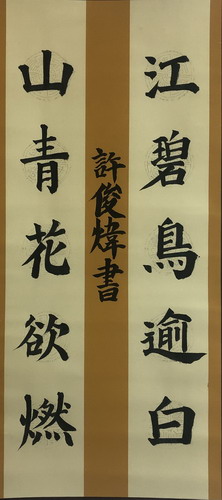 江碧鳥逾白
山青花欲燃
許俊煒書